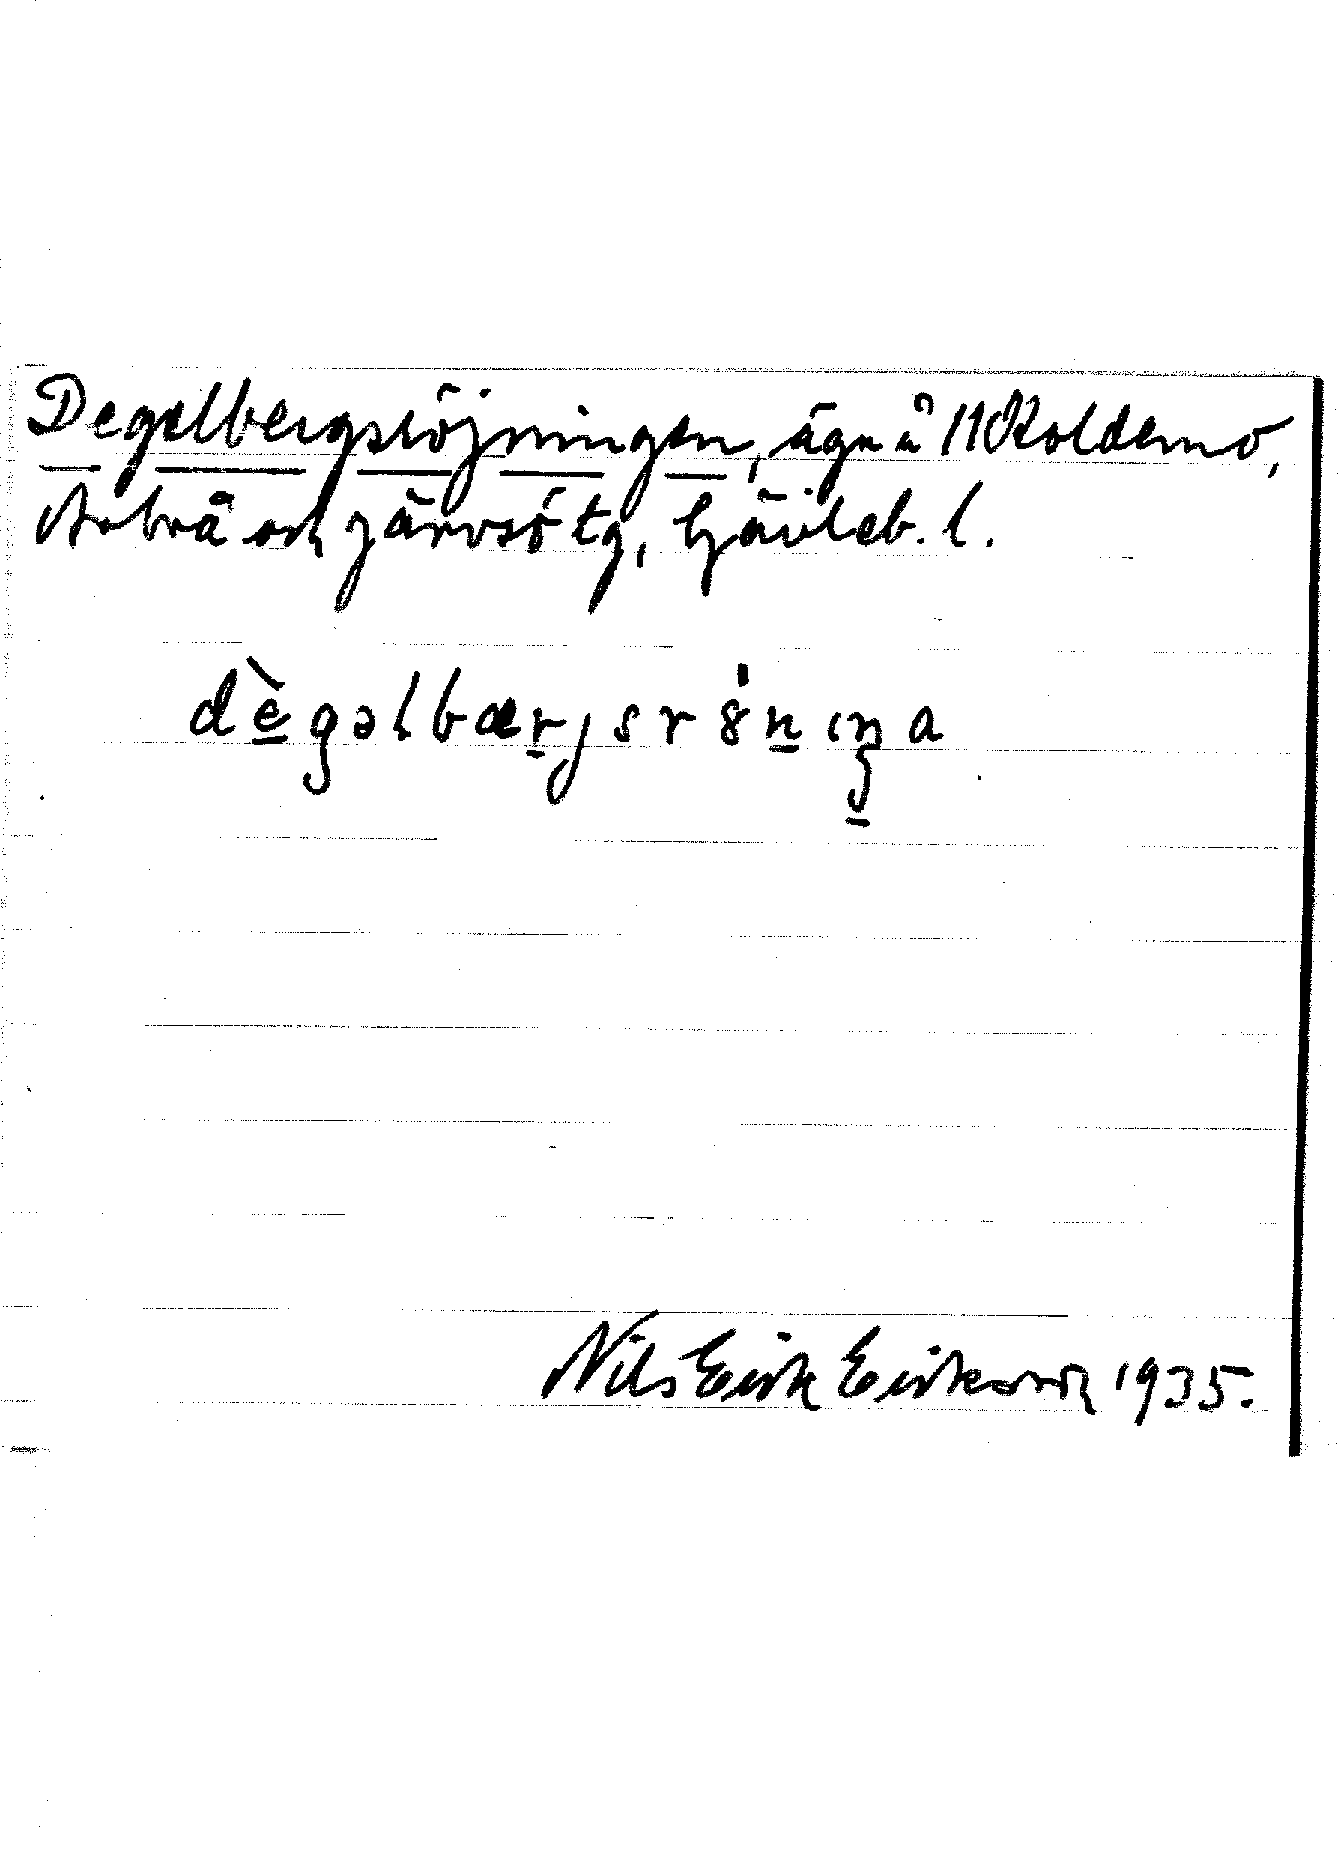 Degelbergsröjningen, äga å 11 Koldemo,
Arbrå och Järvsö tg, Gävleb. l.
dègəlbærjsrönıŋa
Nils Erik Eriksson 1935.